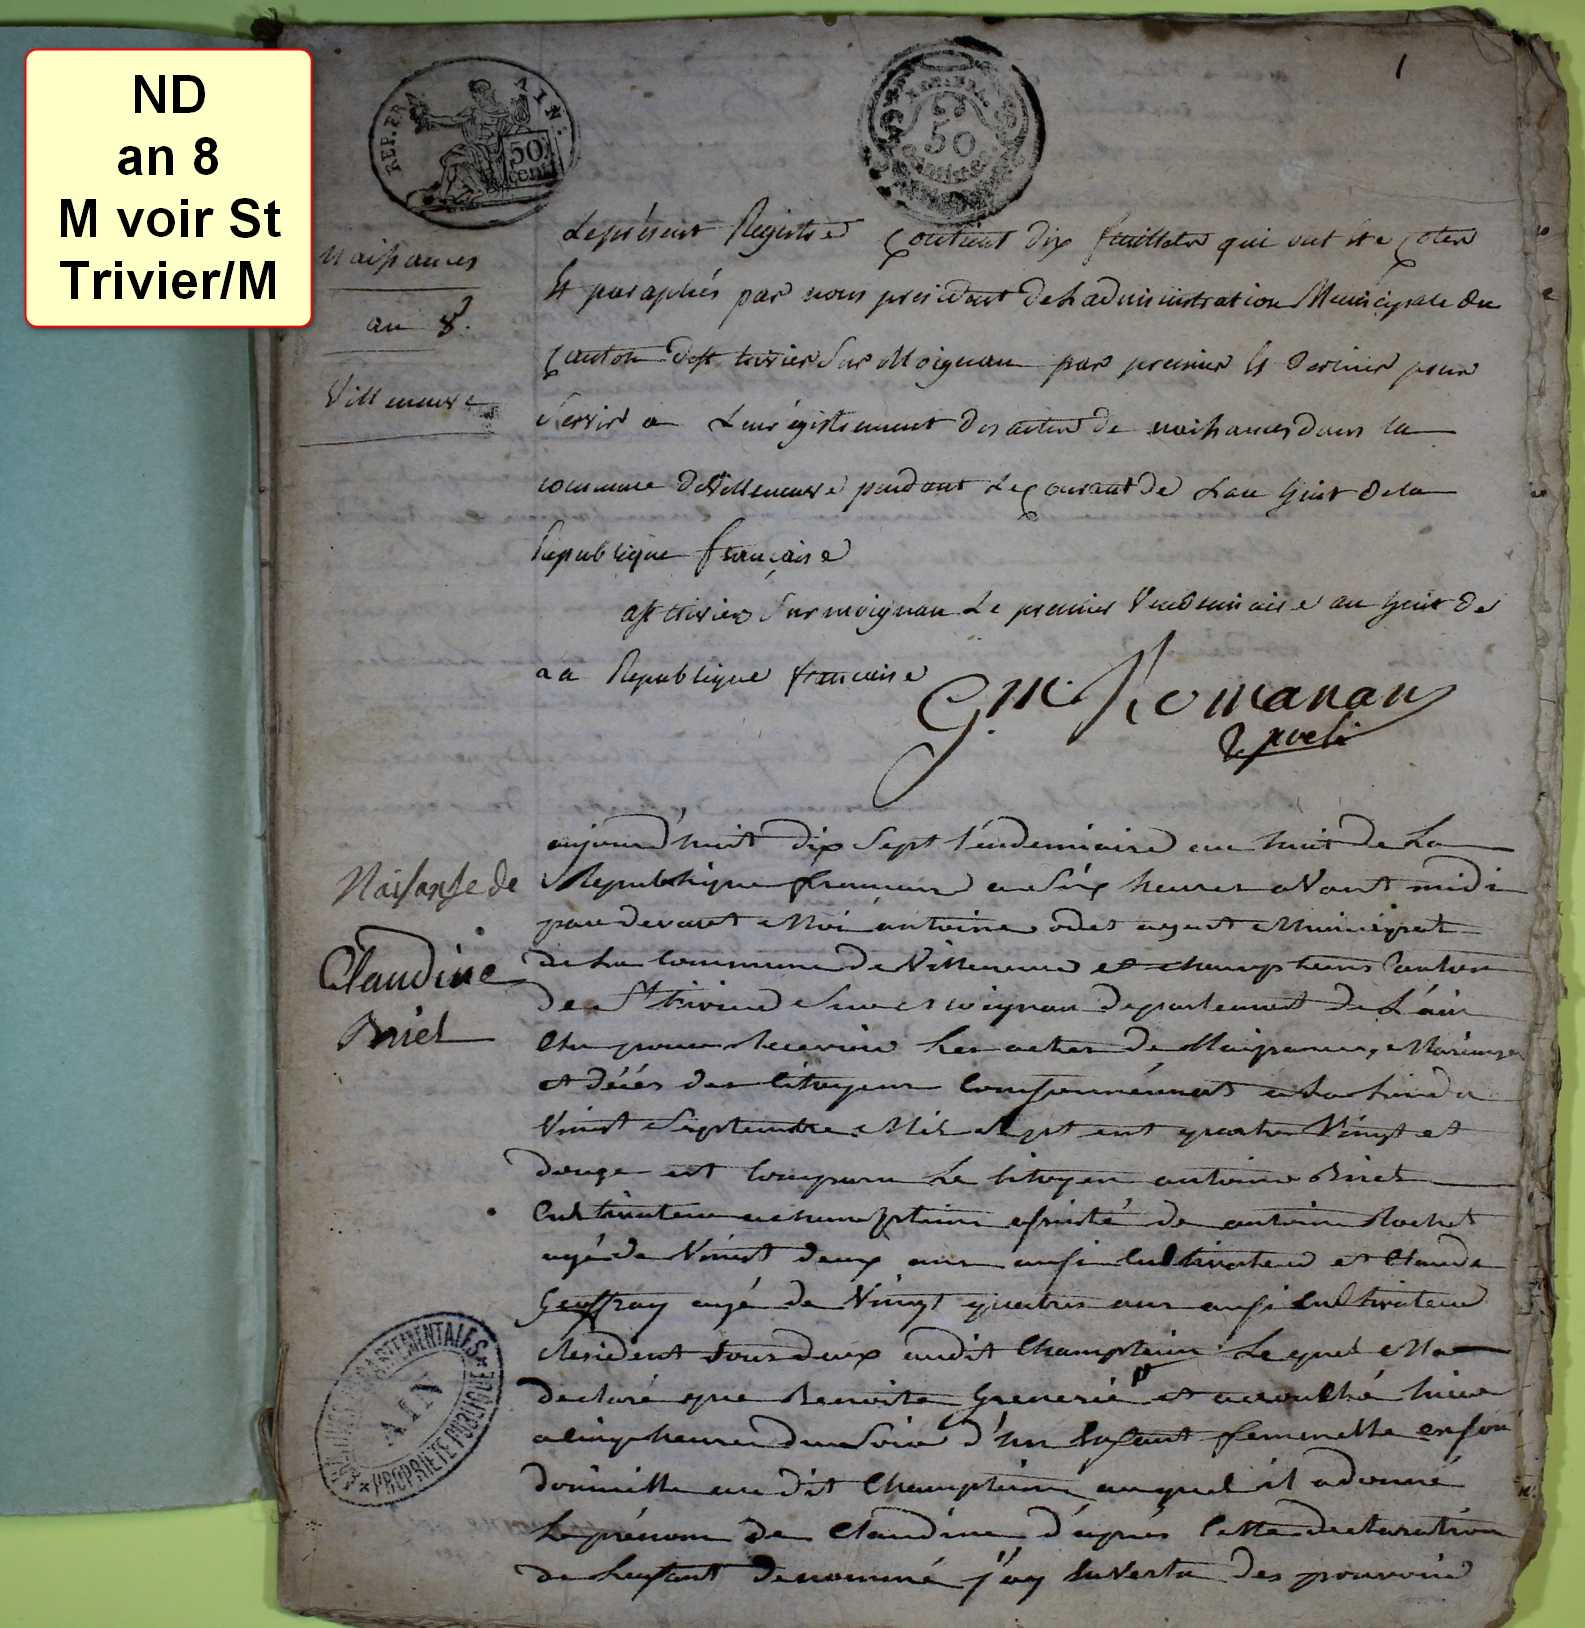 ND
an 8
M voir St
Trivier/M
1
REP. FRA. AIN.
50 cent
50
Naissances
an 8.
Villeneuve
Le présent Registre Contient dix feuillets qui ont ete Cotes
Et paraphés par nous president de Ladministration Municipale du
Canton de st trivier Sur Moignan par premier Et dernier pour
Servir a Lenrégistrement des actes de naissances dans la
commune de Villeneuve pendant Le Courant de Lan huit de la
Republique française
a st trivier Sur moignan Le premier Vendemiaire an huit de
La Republique francaise
G. M. Romanan
aujourd'huit dix Sept Vendemiaire an huit de La
Naisanse de
Republique francaise a Six heures avant midi
par devant Moi antoine odet agent Municipal
Claudine
de La Commune de Villeneuve et champteins Canton
de St trivier Sur Moignan departement de L'ain
Briel
Elu pour Recevoir Les actes de Naissances, Mariages
et décés des Citoyens Conformément a La Loi du
Vint Septembre Mil Sept cent quatre Vingt et
douze est Comparu Le Citoyen antoine Briel
Cultivateur a champtein assisté de antoine Rochet
agé de Vint deux ans aussi Cultivateur et Claude
Geoffray agé de Vingt quatres ans aussi Cultivateur
Résident tous deux audit Champtein Lequel Ma
declaré que Benoite Grenerié est accouché hier
a cinq heures du Soir d'un Enfant femenelle en son
domicille au dit Champtein auquel il a donné
Le prénom de Claudine d'aprés Cette declaration
de Lenfant denommé j'ay En Vertu des pouvoir
ARCHIVES DEPARTEMENTALES
AIN
* PROPRIETE PUBLIQUE *